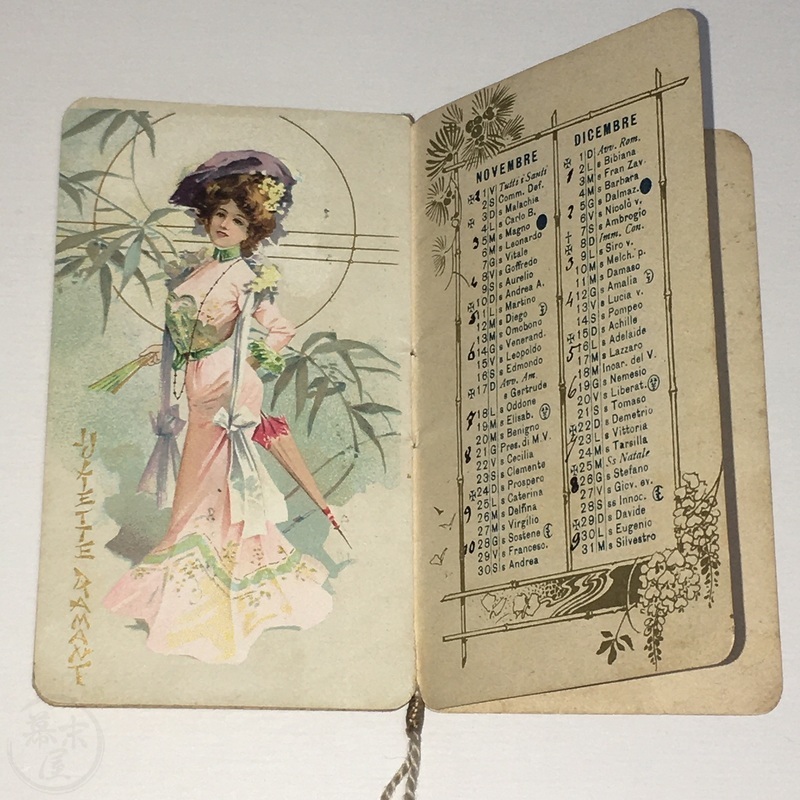 JULIETTE DIAMANTE
NOVEMBRE
1 V Tutti i Santi
2 S Comm. Def.
3 D s Malachia
4 L s Carlo B.
5 M s Magno
6 M s Leonardo
7 G s Vitale
8 V s Goffredo
9 S s Aurelio
10 D s Andrea A.
11 L s Martino
12 M s Diego
13 M s Omobono
14 G s Venerand.
15 V s Leopoldo
16 S s Edmondo
17 D Avv. Am.
s Gertrude
18 L s Oddone
19 M s Elisab.
20 M s Benigno
21 G Pres. di M.V.
22 V s Cecilia
23 S s Clemente
24 D s Prospero
25 L s Caterina
26 M s Delfina
27 M s Virgilio
28 G s Sostene
29 V s Francesc.
30 S s Andrea
DICEMBRE
1 D Avv. Rom.
2 L s Bibiana
3 M s Fran Zav.
4 M s Barbara
5 G s Dalmaz.
6 V s Nicolò v.
7 S s Ambrogio
8 D Imm. Con.
9 L s Siro v.
10 M s Melch. p.
11 M s Damaso
12 G s Amalia
13 V s Lucia v.
14 S s Pompeo
15 D s Achille
16 L s Adelaide
17 M s Lazzaro
18 M Incar. del V.
19 G s Nemesio
20 V s Liberat.
21 S s Tomaso
22 D s Demetrio
23 L s Vittoria
24 M s Tarsilla
25 M Ss Natale
26 G s Stefano
27 V s Giov. ev.
28 S ss Innoc.
29 D s Davide
30 L s Eugenio
31 M s Silvestro
幕末屋